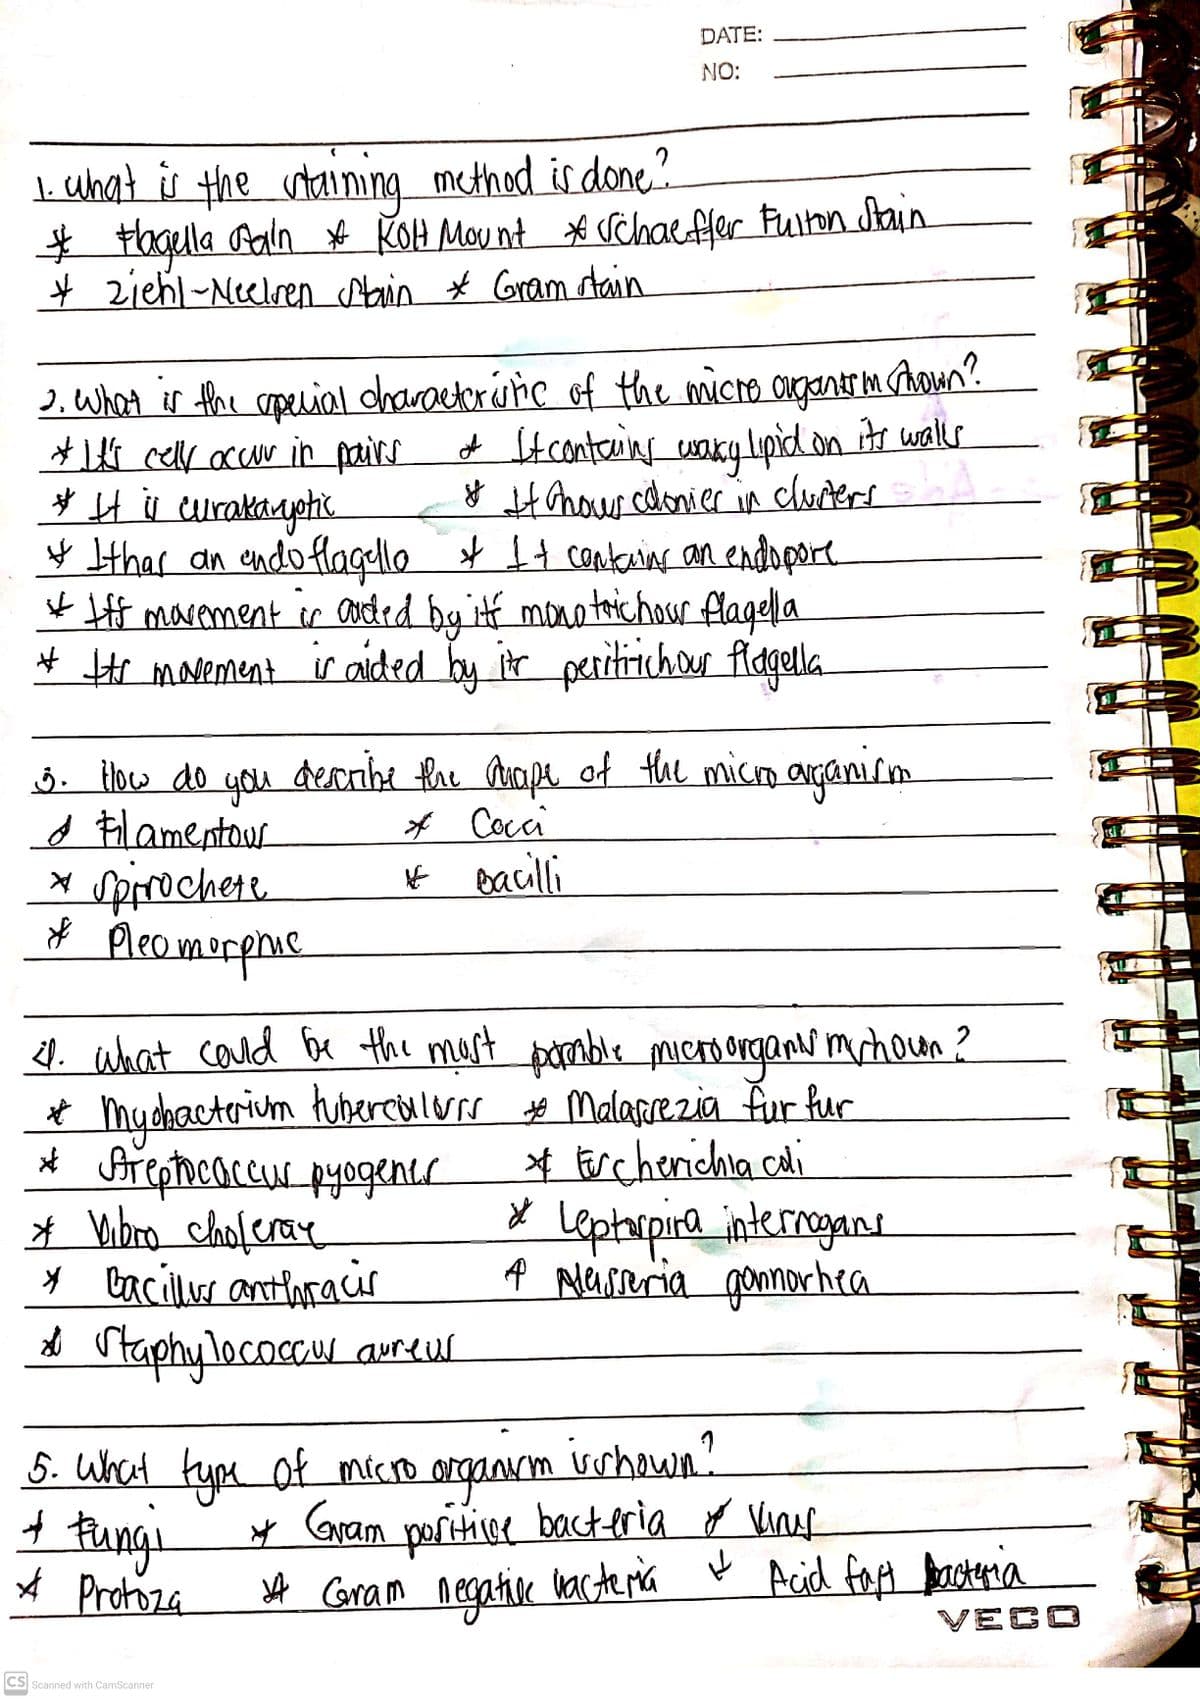 DATE:
NO:
1. What is the staining method is done?
* Flagella Stain * KOH Mount * Schaeffer Fulton Stain
* Ziehl-Neelsen Stain * Gram stain
2. What is the special characteristic of the micro organism shown?
* It's cells occur in pairs * It contains waxy lipid on its walls
* It is eurakaryotic * It shows colonies in clusters
* It has an endoflagella * It contains an endopore
* Its movement is aided by its monotrichour flagella
* Its movement is aided by its peritrichour flagella
3. How do you describe the shape of the micro organism
* Filamentous * Cocci
* Spirochete * Bacilli
* Pleomorphic
4. What could be the most possible microorganism shown?
* Myobacterium tuberculosis * Malassezia fur fur
* Streptococcus pyogenes * Escherichia coli
* Vibro cholerae * Leptospira interrogans
* Bacillus anthracis * Neisseria gonnorhea
* Staphylococcus aureus
5. What type of micro organism is shown?
* Fungi * Gram positive bacteria * Virus
* Protoza * Gram negative bacteria * Acid fast bacteria
VECO
CS Scanned with CamScanner